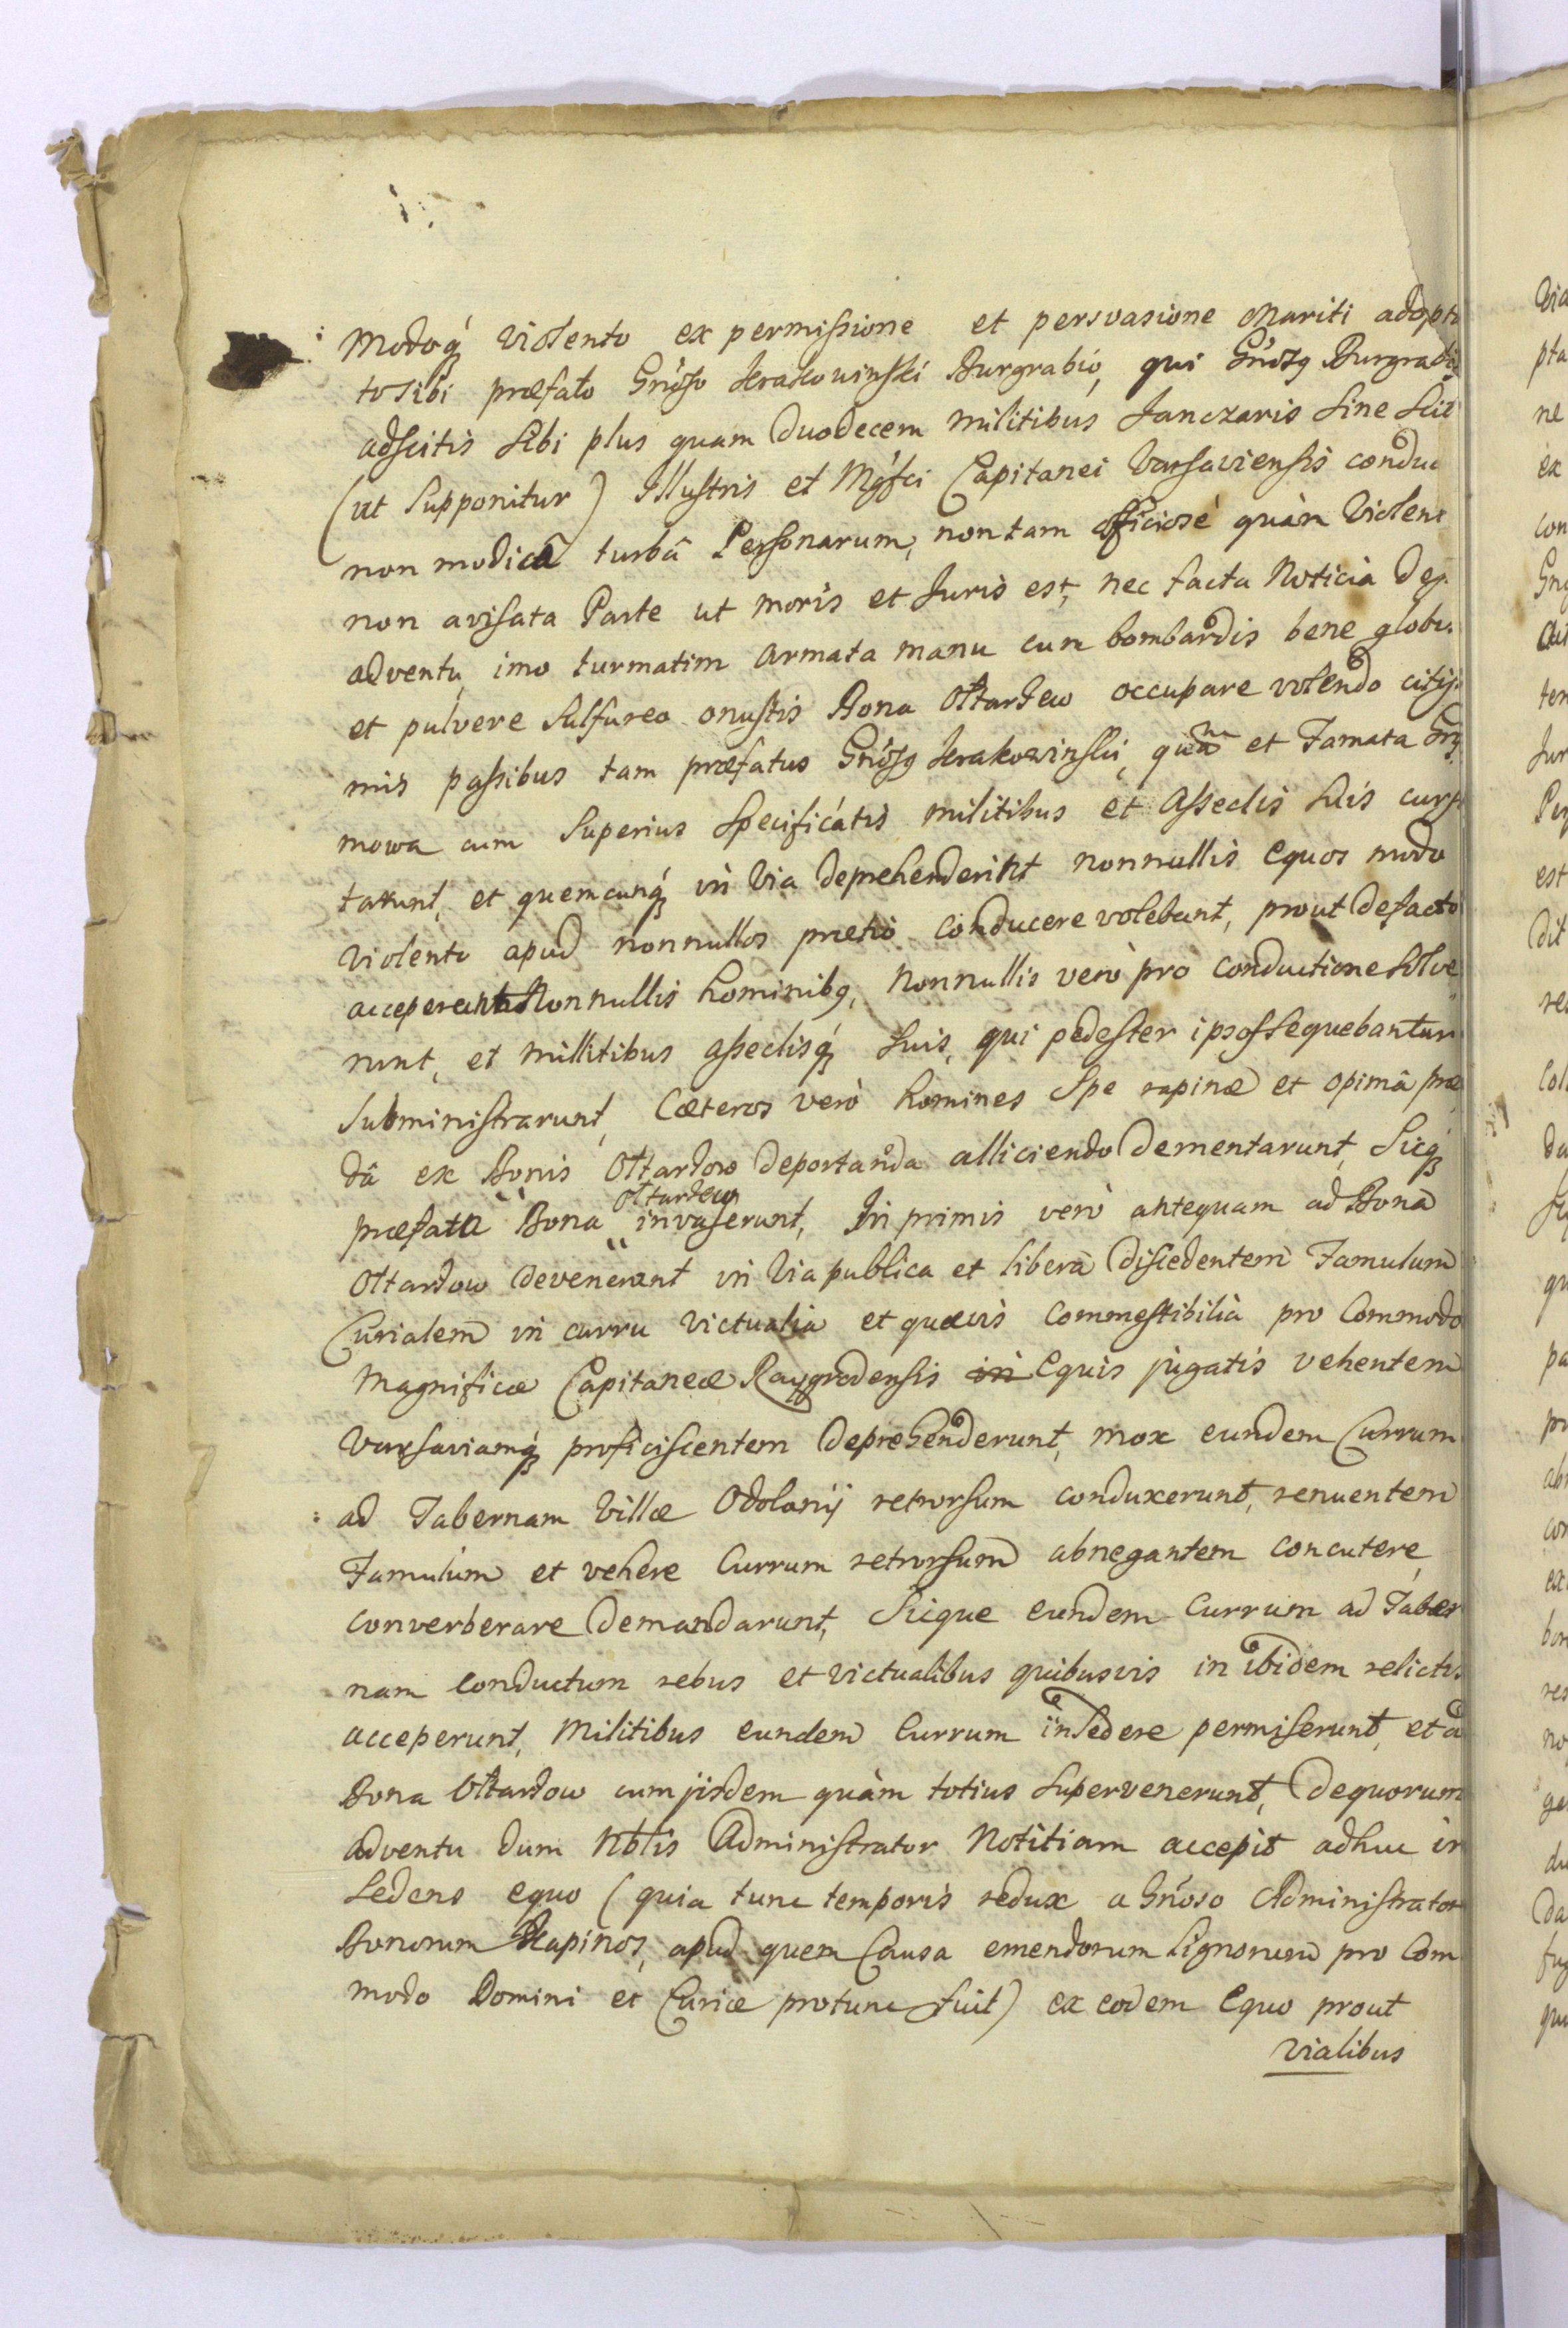 Modoq́ violento ex permissione et persvasione Mariti adopta
to sibi præfato Gńoso Krakowinski Burgrabio, qui Gńosq Burgrabiq
adscitis sibi plus quam duodecem militibus Janczaris sine scit
(ut supponitur) Illustris et Mgfci Capitanei Varsaviensis conduc
non modicâ turbâ Personarum, non tam officiosè quàm violent
non avisata Parte ut moris et Juris est, nec facta Noticia de
adventu, imo turmatim armata manu cum bombardis bene globis
et pulvere sulfureo onustis Bona Ottardew occupare volendo citis
mis passibus tam præfatus Gńosq Krakowinski, quam et Famata
mowa cum superius specificatis militibus et asseclis suis
tarunt, et quemcunq́ in via deprehenderint nonnullis equos modo
violento apud nonnullos prætio conducere volebant, prout defacto
acceperunt Nonnullis hominibq, Nonnullis verò pro conductione solve
runt, et millitibus asseclisq́ suis, qui pedester ipsos sequebantur
subministrarunt, Cæteros verò homines spe rapinæ et opimâ præ
dâ ex Bonis Ottardow deportanda alliciendo dementarunt, Sicq́
Ottardew
præfata Bona invaserunt, In primis verò antequam ad Bona
Ottardow devenerant in via publica et liberà discedentem Famulum
Curialem in curru victualia et quævis commestibilia pro Commodo
Magnificæ Capitaneæ Raygrodensis in Equis jugatis vehentem
Varsaviamq́ proficiscentem deprehenderunt, mox eundem Currum
ad Tabernam Villæ Odolany retrorsum conduxerunt, renuentem
Famulum et vehere Currum retrorsum abnegantem concutere,
converberare demandarunt, Sicque eundem Currum ad Taber
nam conductum rebus et victualibus quibusvis in ibidem relictis
acceperunt, Militibus eundem Currum insedere permiserunt, et a
Bona Ottardow cum jisdem quàm totius supervenerunt, de quorum
adventu dum Nblis Administrator Notitiam accepit adhuc in
sedens equo (quia tunc temporis redux a Gńoso Administrator
Bonorum Kapinos, apud quem Causa emendorum Lignorum pro Com
modo Domini et Curiæ protunc fuit) ex eodem Equo prout
vialibus